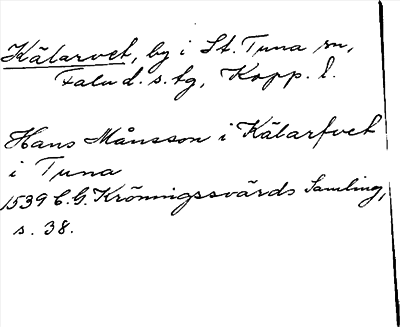 Kälarvet, by i St. Tuna sn,
Falu d. s. tg, Kopp. l.
Hans Månsson i Kälarfvet
i Tuna
1539 C. G. Kröningssvärds Samling,
s. 38.